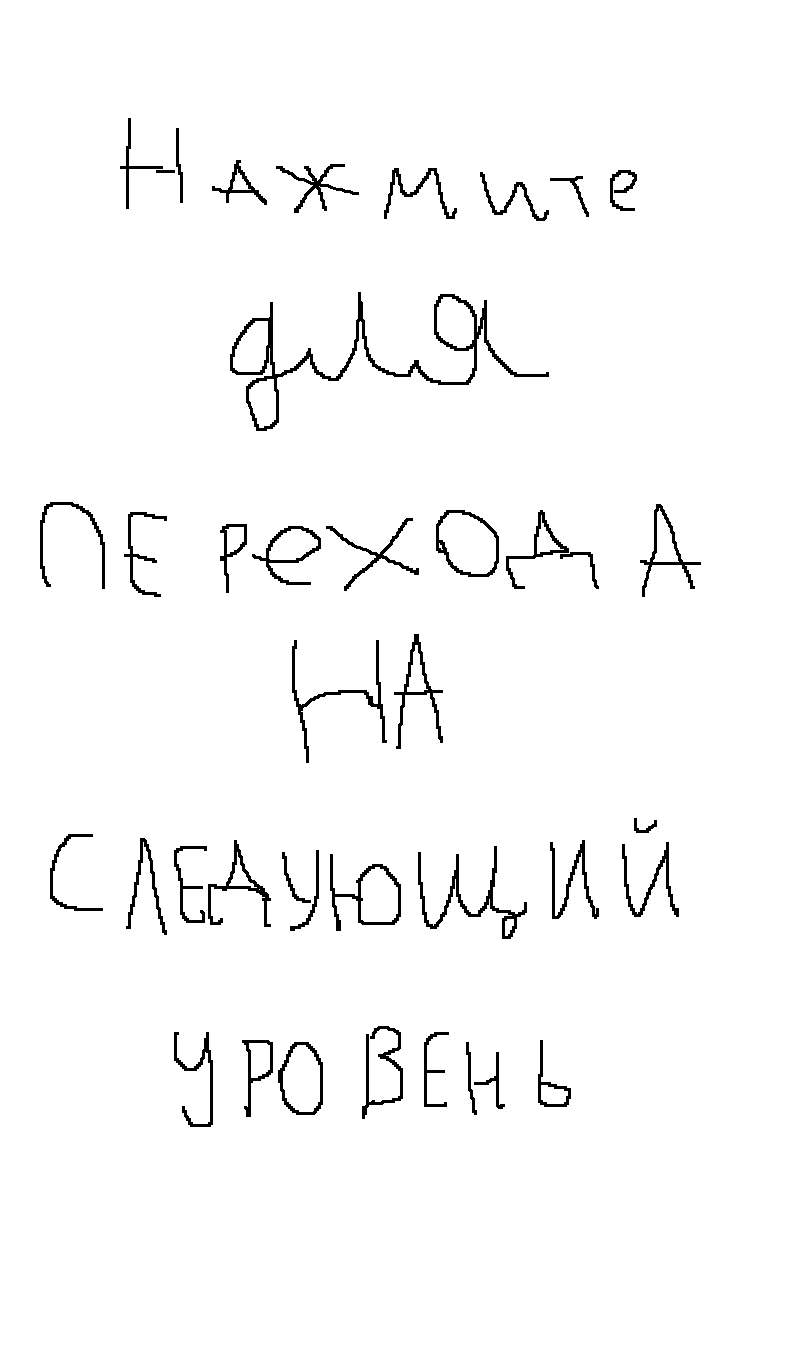 Нажмите
для
ПЕреХОДА
НА
СЛЕДУЮЩИЙ
УРОВЕНЬ